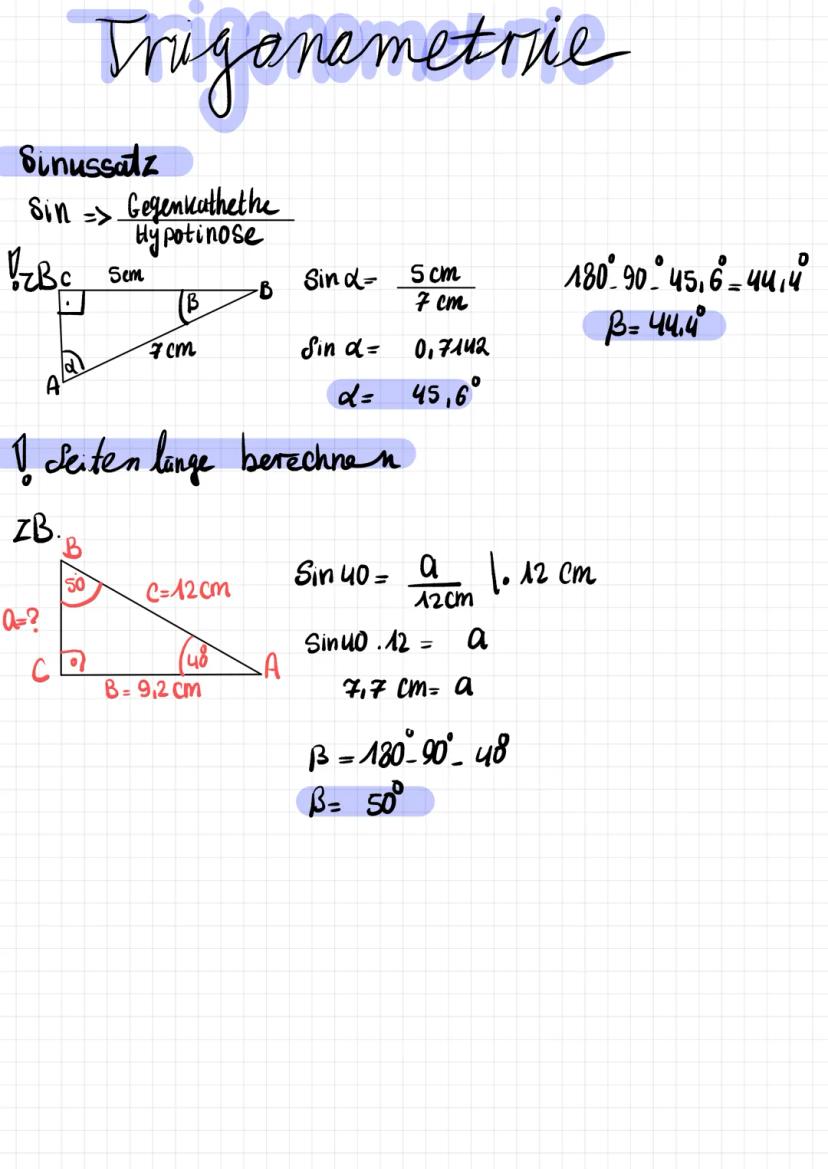 Trigonametrie
Sinussatz
Sin => Gegenkathethe
Hypotinose
! zB C 5cm B
β
7cm
α
A
Sin α = 5 cm
7 cm
Sin α = 0,7142
α = 45,6°
180° - 90° - 45,6° = 44,4°
β = 44,4°
! Seiten länge berechnen
ZB.
B
50
C=12cm
a=?
C 48 A
B = 9,2 cm
Sin 40 = a | · 12 cm
12cm
Sin 40 · 12 = a
7,7 cm = a
β = 180° - 90° - 48
β = 50°